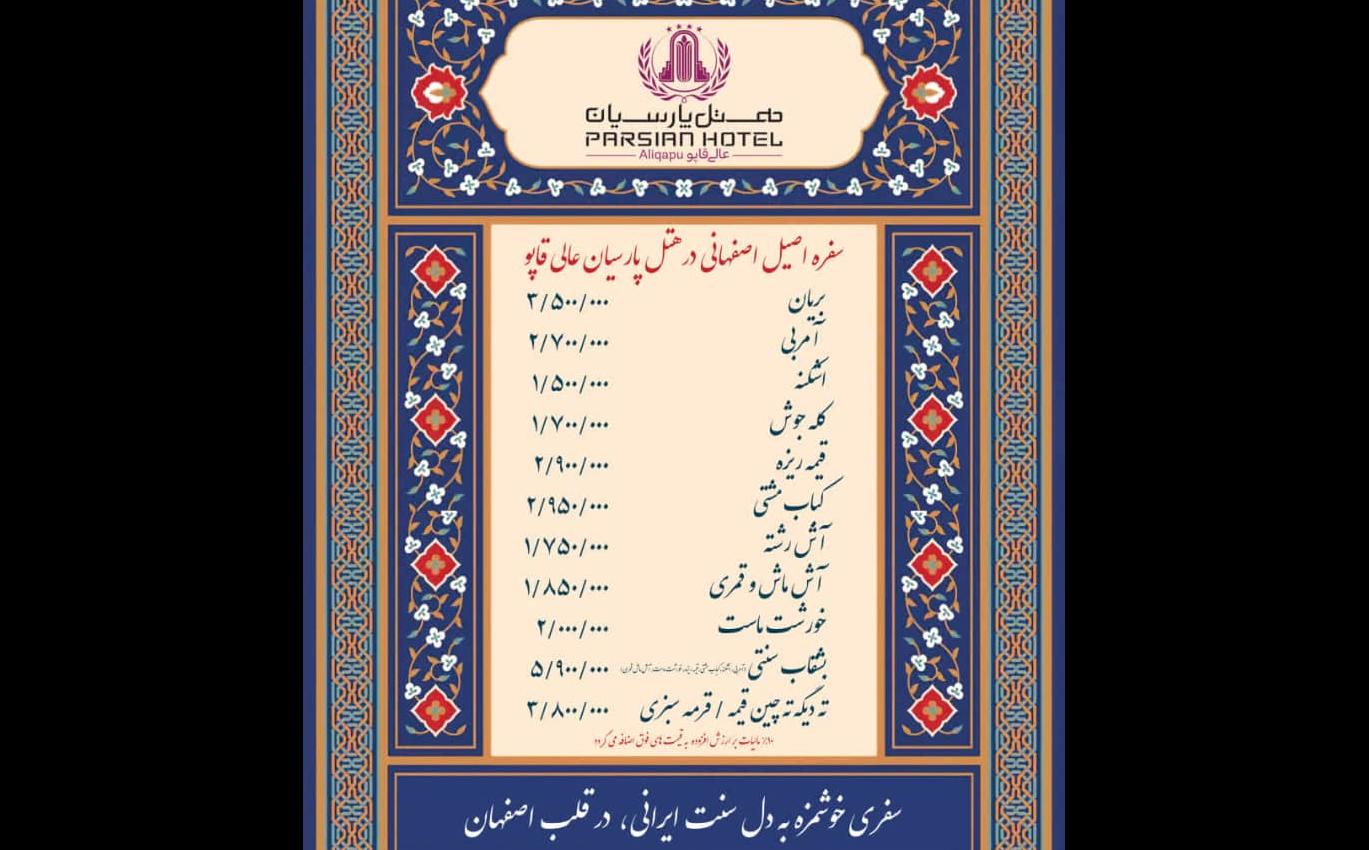 هتل پارسیان
PARSIAN HOTEL
Aliqapu عالی‌قاپو
سفره اصیل اصفهانی در هتل پارسیان عالی قاپو
بریان ۳/۵۰۰/۰۰۰
آمربی ۲/۷۰۰/۰۰۰
اشکنه ۱/۵۰۰/۰۰۰
کله جوش ۱/۷۰۰/۰۰۰
قیمه ریزه ۲/۹۰۰/۰۰۰
کباب مشتی ۲/۹۵۰/۰۰۰
آش رشته ۱/۷۵۰/۰۰۰
آش ماش و قمری ۱/۸۵۰/۰۰۰
خورشت ماست ۲/۰۰۰/۰۰۰
بشقاب سنتی ۵/۹۰۰/۰۰۰
ته دیگ ته چین قیمه / قرمه سبزی ۳/۸۰۰/۰۰۰
۱۰٪ مالیات بر ارزش افزوده به قیمت های فوق اضافه می گردد
سفری خوشمزه به دل سنت ایرانی، در قلب اصفهان